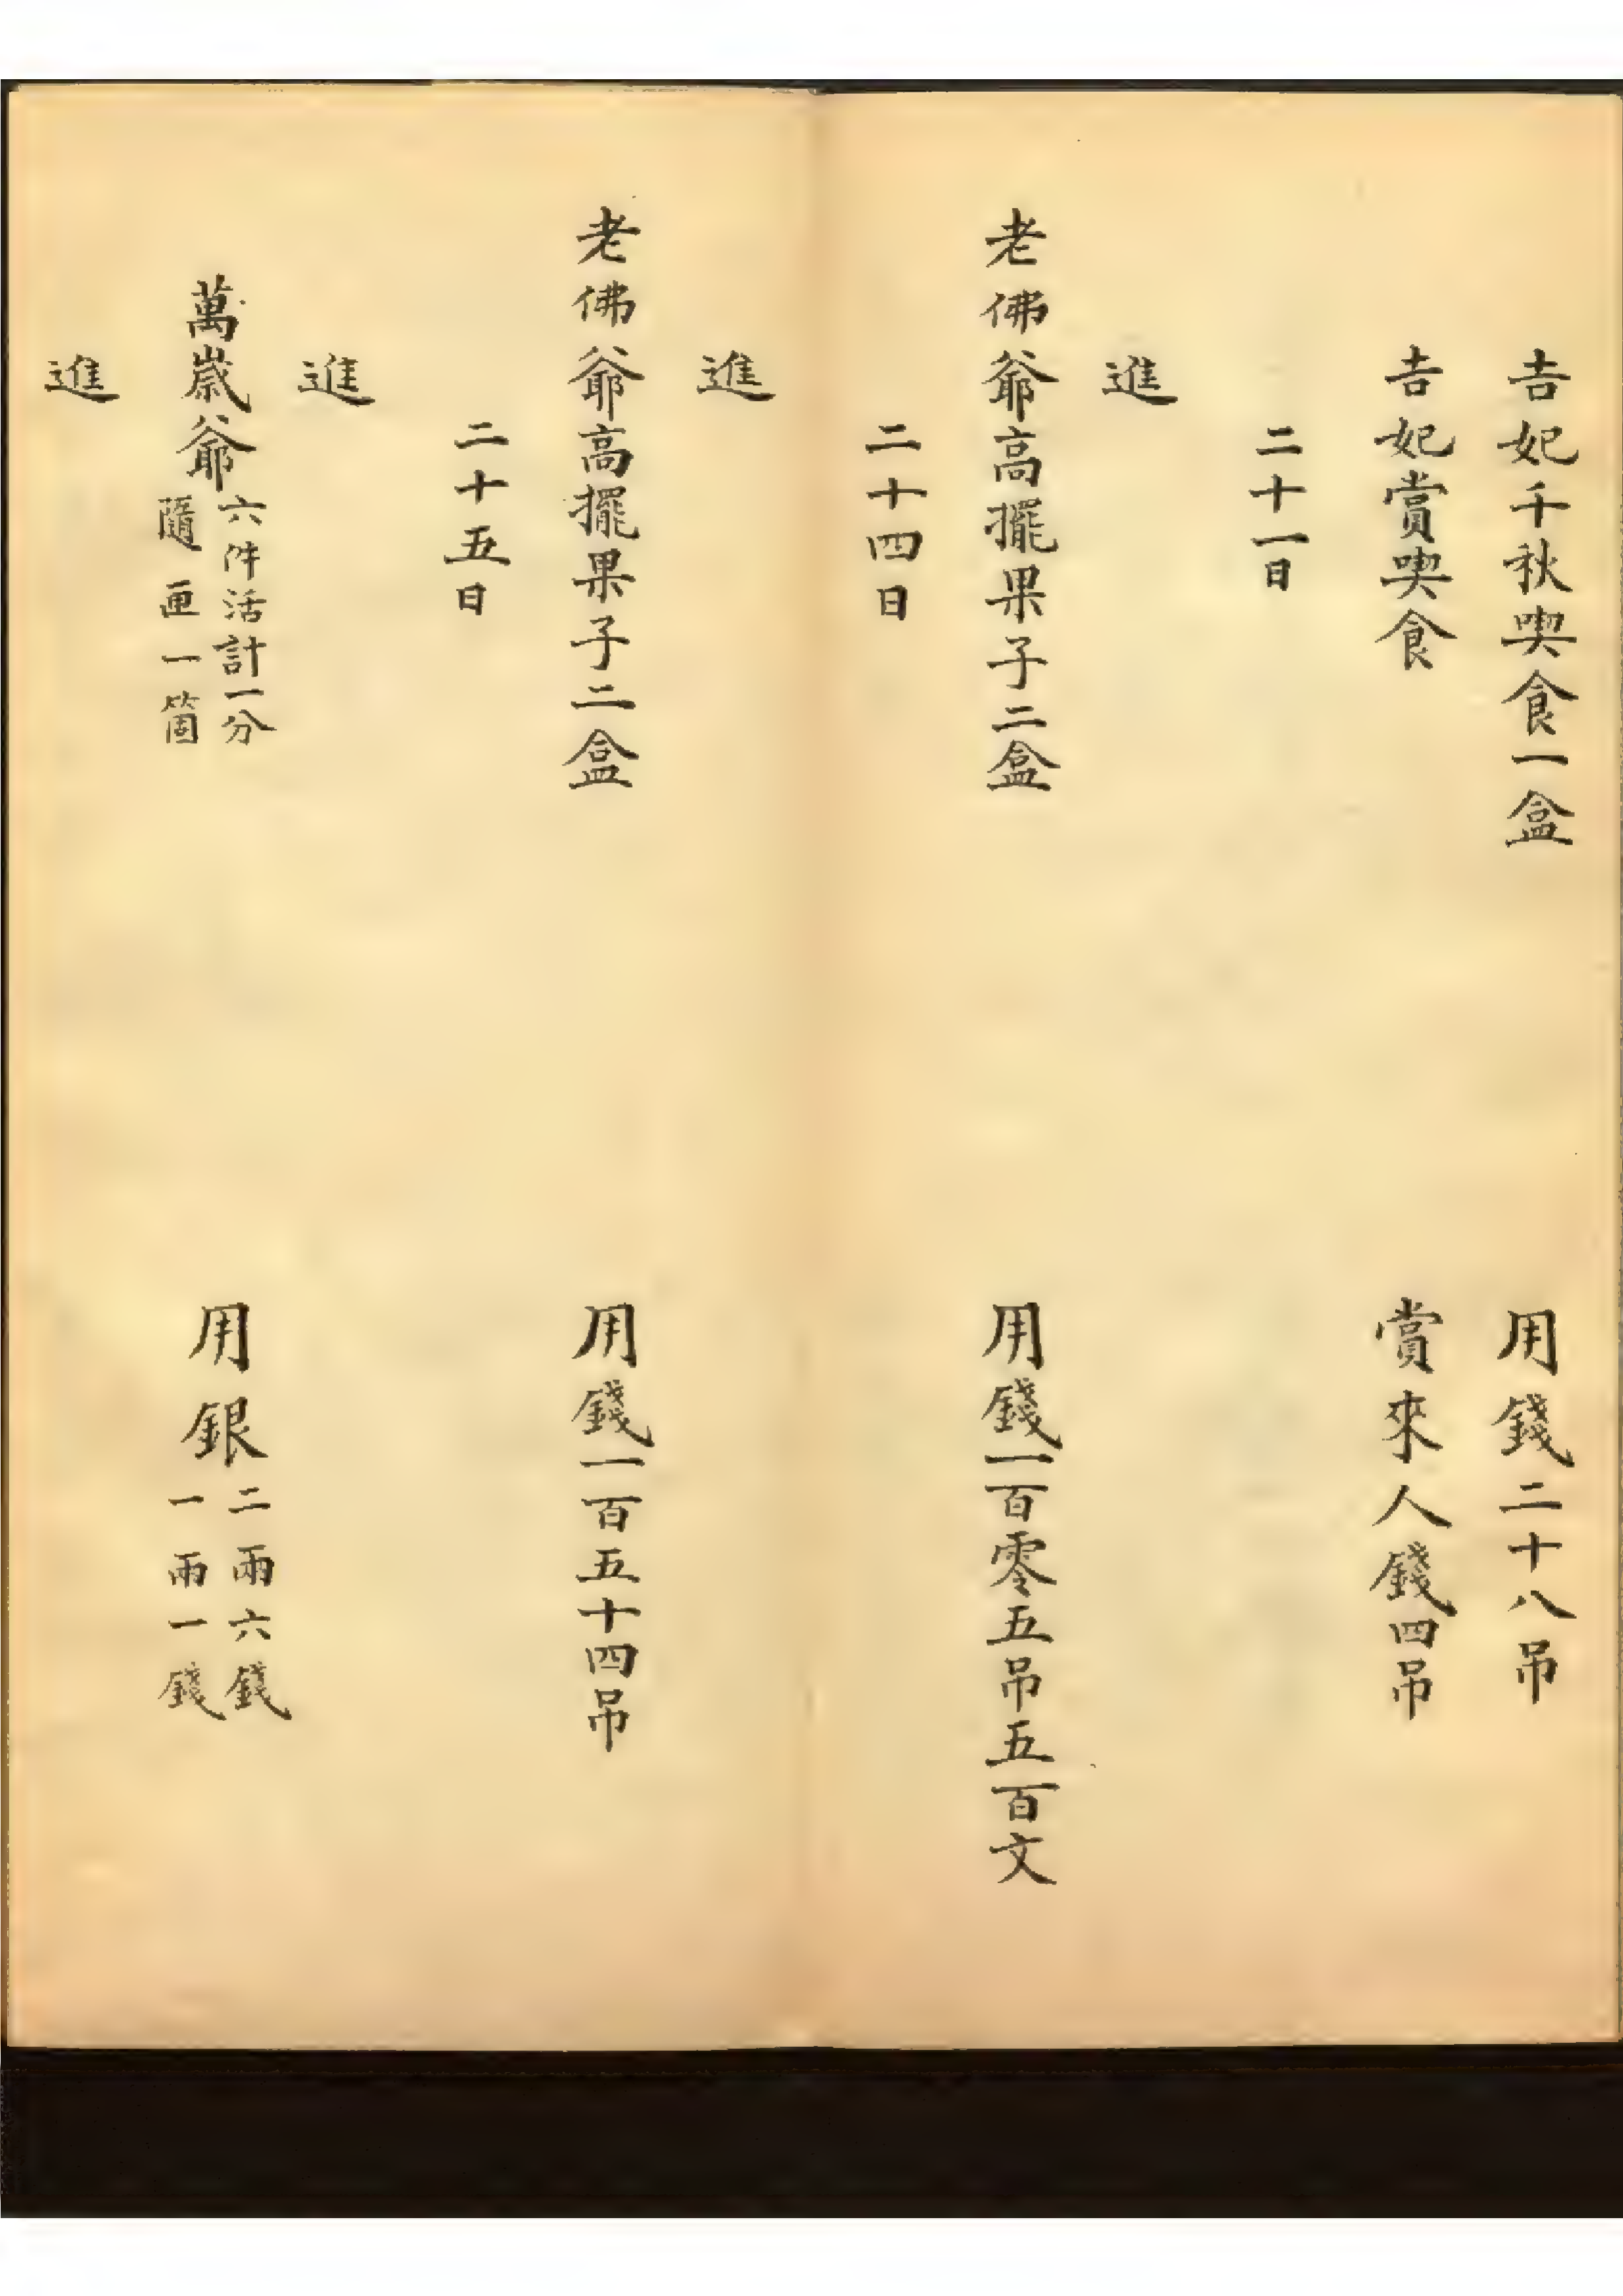 吉妃千秋喫食一盒 用錢二十八吊
吉妃賞喫食 賞來人錢四吊
二十一日
進
老佛爺高擺果子二盒 用錢一百零五吊五百文
二十四日
進
老佛爺高擺果子二盒 用錢一百五十四吊
二十五日
進
萬歲爺 六件活計一分 隨匣一箇 用銀 二兩六錢 一兩一錢
進